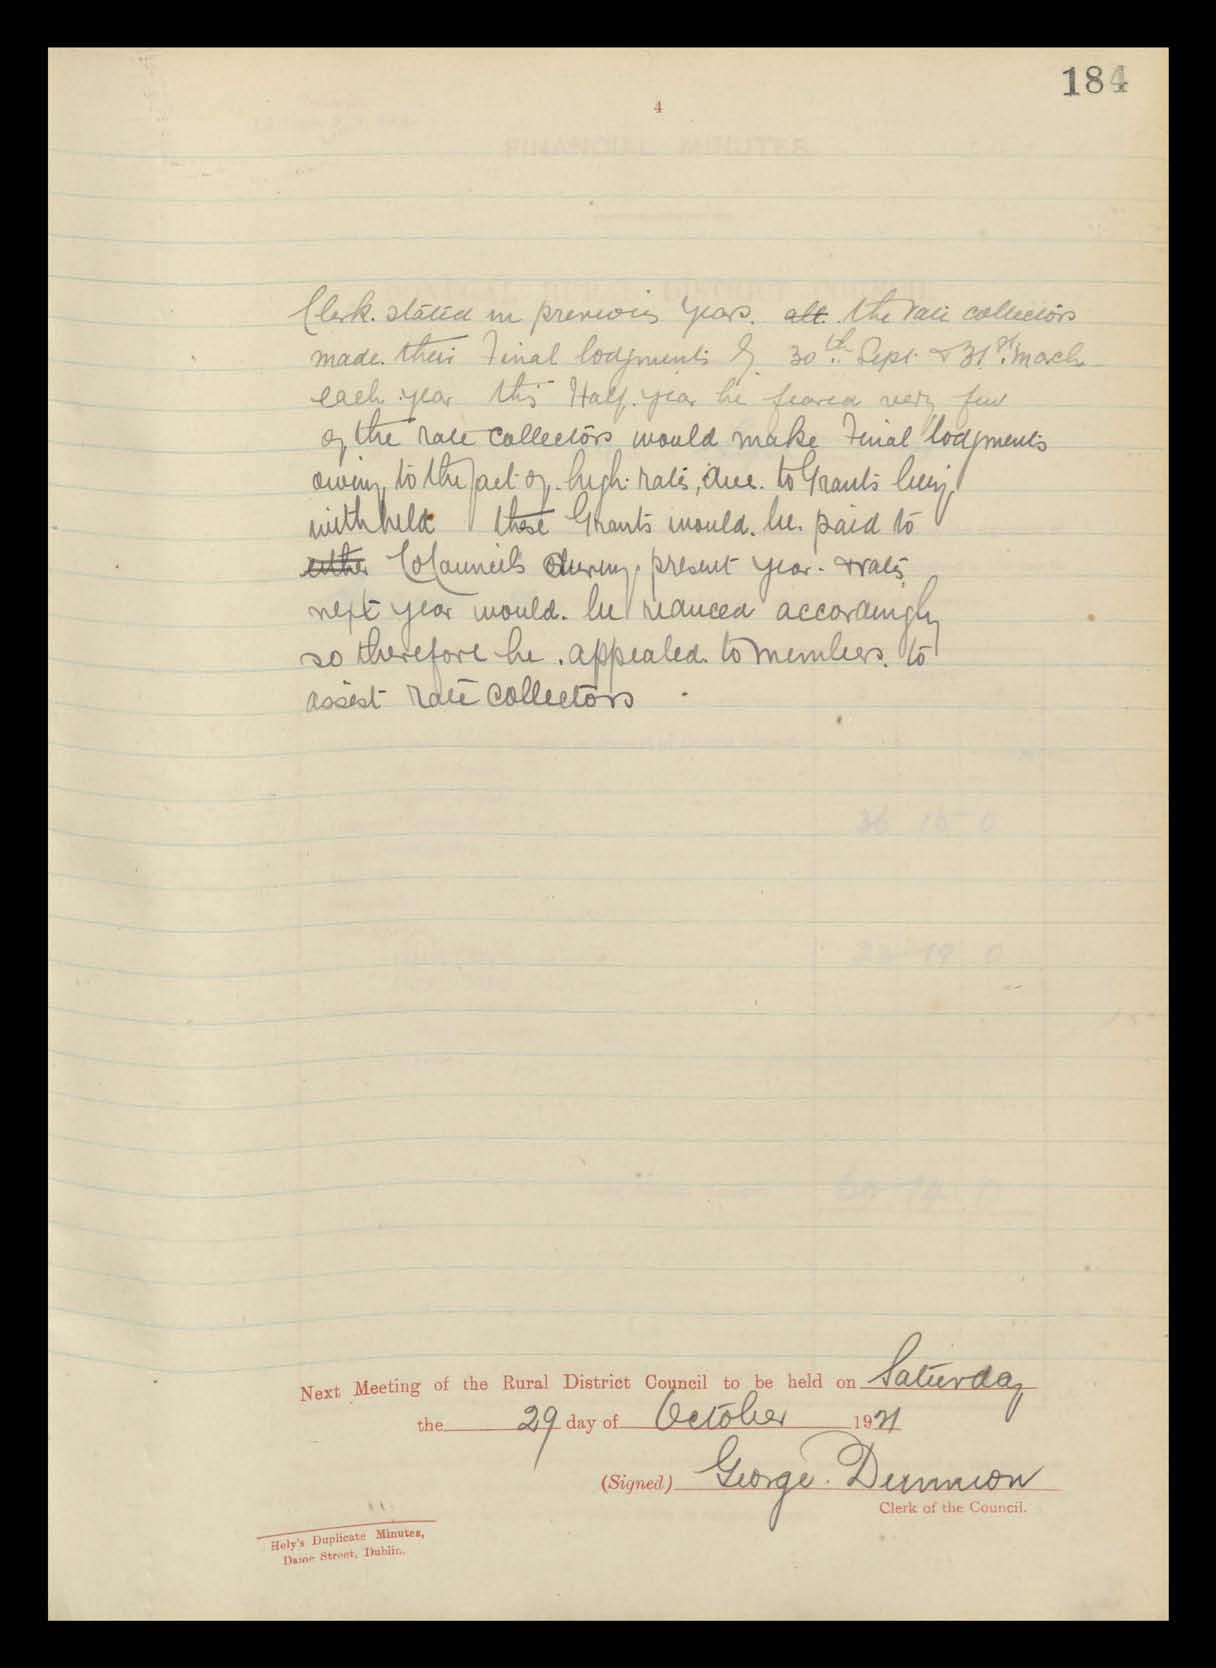 184
4
Clerk. stated in previous years. all. the rate collectors
made. their Final lodgments by 30th Sept. & 31st. Mach
each year this Half. year he feared very few
of the rate collectors would make Final lodgments
owing to the fact of. high. rates, due. to Grants being
withheld these Grants would. be. paid to
either CoCouncils during present year. & rates
next year would. be reduced accordingly
so therefore he. appealed. to members. to
assist rate collectors.
Next Meeting of the Rural District Council to be held on Saturday
the 29 day of October 1921
(Signed) George. Dunnion
Clerk of the Council.
Hely's Duplicate Minutes,
Dame Street, Dublin.